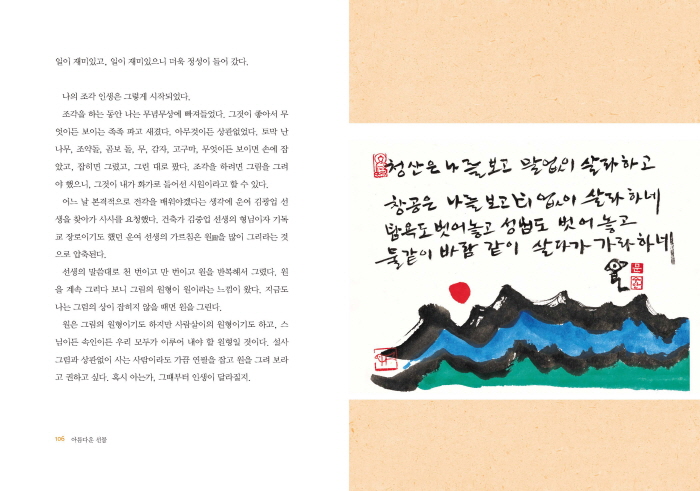 일이 재미있고, 일이 재미있으니 더욱 정성이 들어 갔다.
나의 조각 인생은 그렇게 시작되었다.
조각을 하는 동안 나는 무념무상에 빠져들었다. 그것이 좋아서 무
엇이든 보이는 족족 파고 새겼다. 아무것이든 상관없었다. 토막 난
나무, 조약돌, 곰보 돌, 무, 감자, 고구마, 무엇이든 보이면 손에 잡
았고, 잡히면 그렸고, 그린 대로 팠다. 조각을 하려면 그림을 그려
야 했으니, 그것이 내가 화가로 들어선 시원이라고 할 수 있다.
어느 날 본격적으로 전각을 배워야겠다는 생각에 운여 김광업 선
생을 찾아가 사사를 요청했다. 건축가 김중업 선생의 형님이자 기독
교 장로이기도 했던 운여 선생의 가르침은 원圓을 많이 그리라는 것
으로 압축된다.
선생의 말씀대로 천 번이고 만 번이고 원을 반복해서 그렸다. 원
을 계속 그리다 보니 그림의 원형이 원이라는 느낌이 왔다. 지금도
나는 그림의 상이 잡히지 않을 때면 원을 그린다.
원은 그림의 원형이기도 하지만 사람살이의 원형이기도 하고, 스
님이든 속인이든 우리 모두가 이루어 내야 할 원형일 것이다. 설사
그림과 상관없이 사는 사람이라도 가끔 연필을 잡고 원을 그려 보라
고 권하고 싶다. 혹시 아는가, 그때부터 인생이 달라질지.
106 아름다운 선물
청산은 나를 보고 말없이 살라하고
창공은 나를 보고 티없이 살라하네
탐욕도 벗어놓고 성냄도 벗어놓고
물같이 바람같이 살다가 가라하네